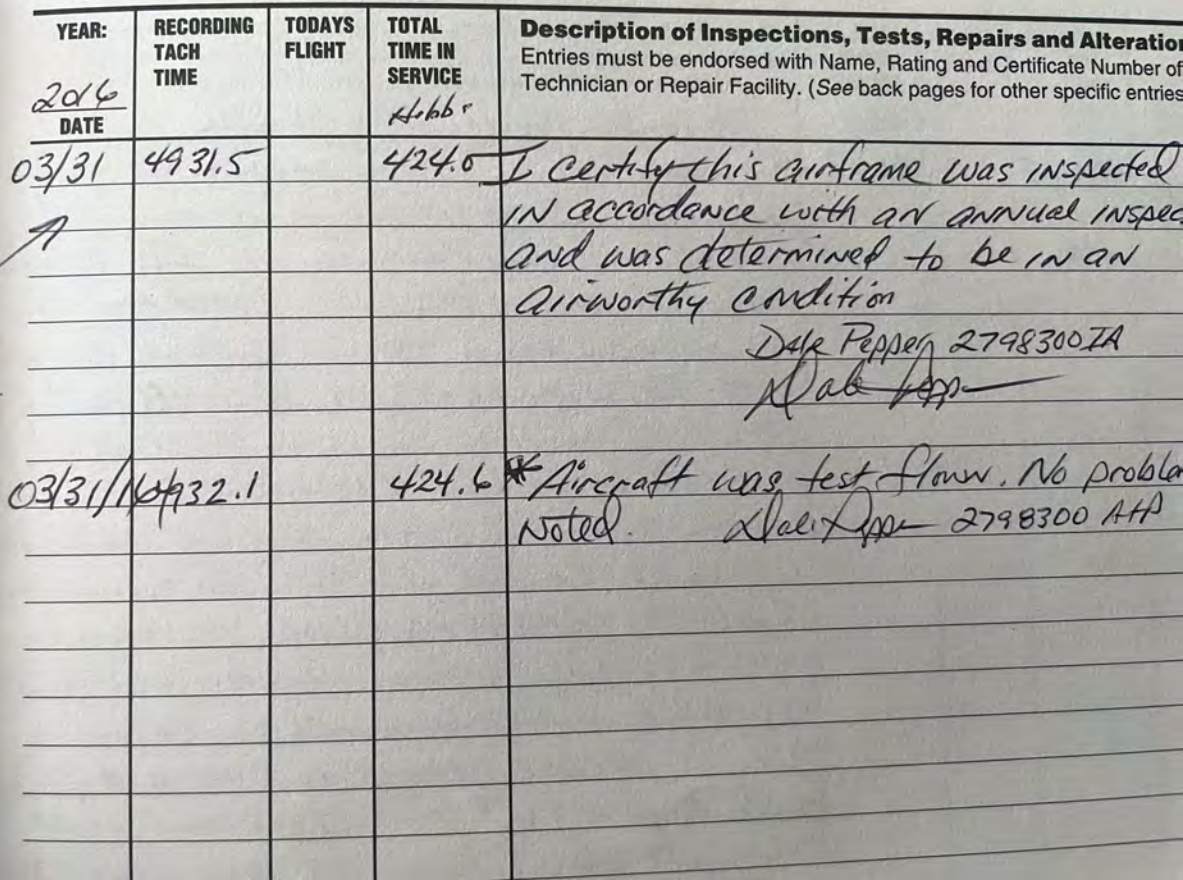 YEAR:
2016
DATE
RECORDING
TACH
TIME
TODAYS
FLIGHT
TOTAL
TIME IN
SERVICE
Hobbs
Description of Inspections, Tests, Repairs and Alteration
Entries must be endorsed with Name, Rating and Certificate Number of
Technician or Repair Facility. (See back pages for other specific entries
03/31 4931.5 424.0 I certify this airframe was inspected
in accordance with an annual inspec
and was determined to be in an
airworthy condition
Dale Pepper 2798300IA
Dale Pepper
03/31/16 4932.1 424.6 * Aircraft was test flown. No problem
Noted. Dale Pepper 2798300 A+P